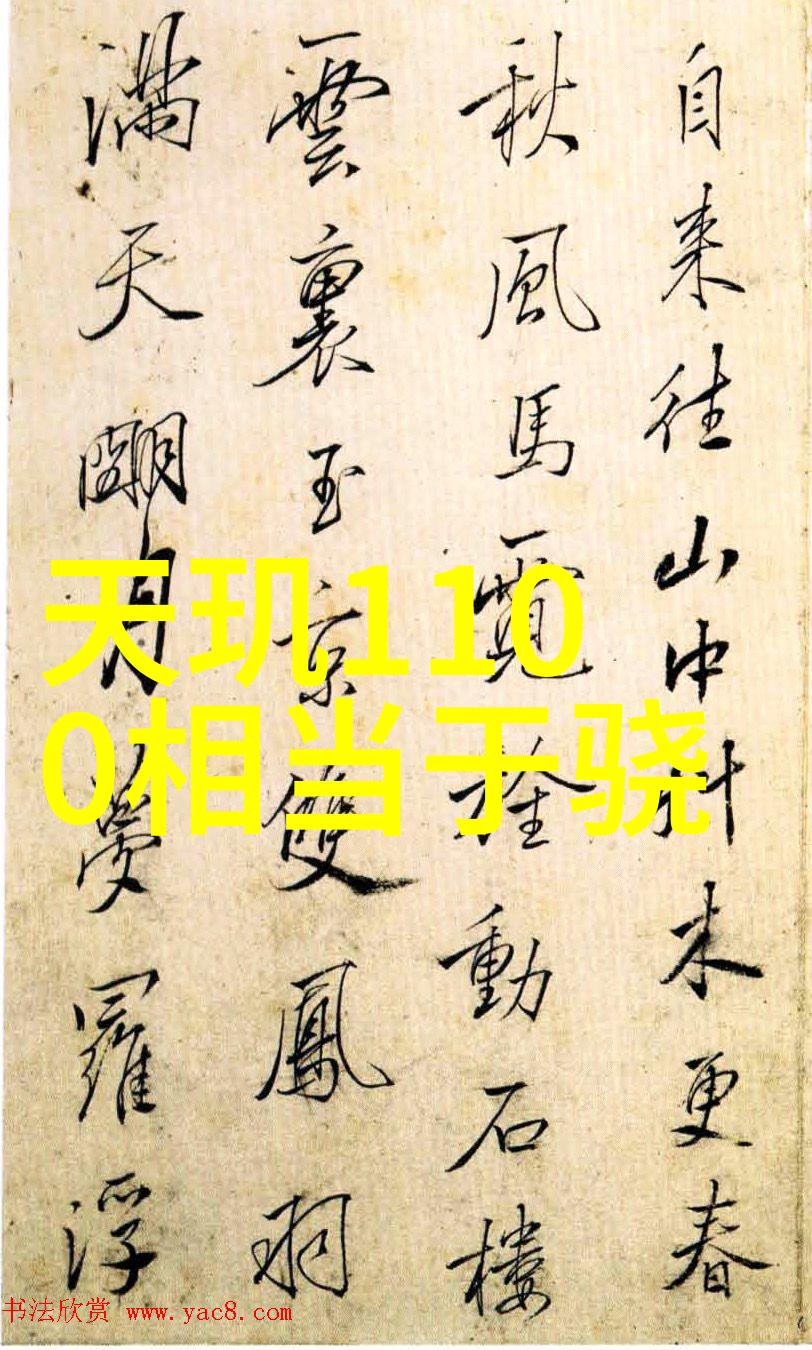 自来往山中更春
秋風馬動石樓
雲裏玉京雙鳳羽
滿天月夢羅浮
天玑110
0相当于骁
书法欣赏 www.yac8.com